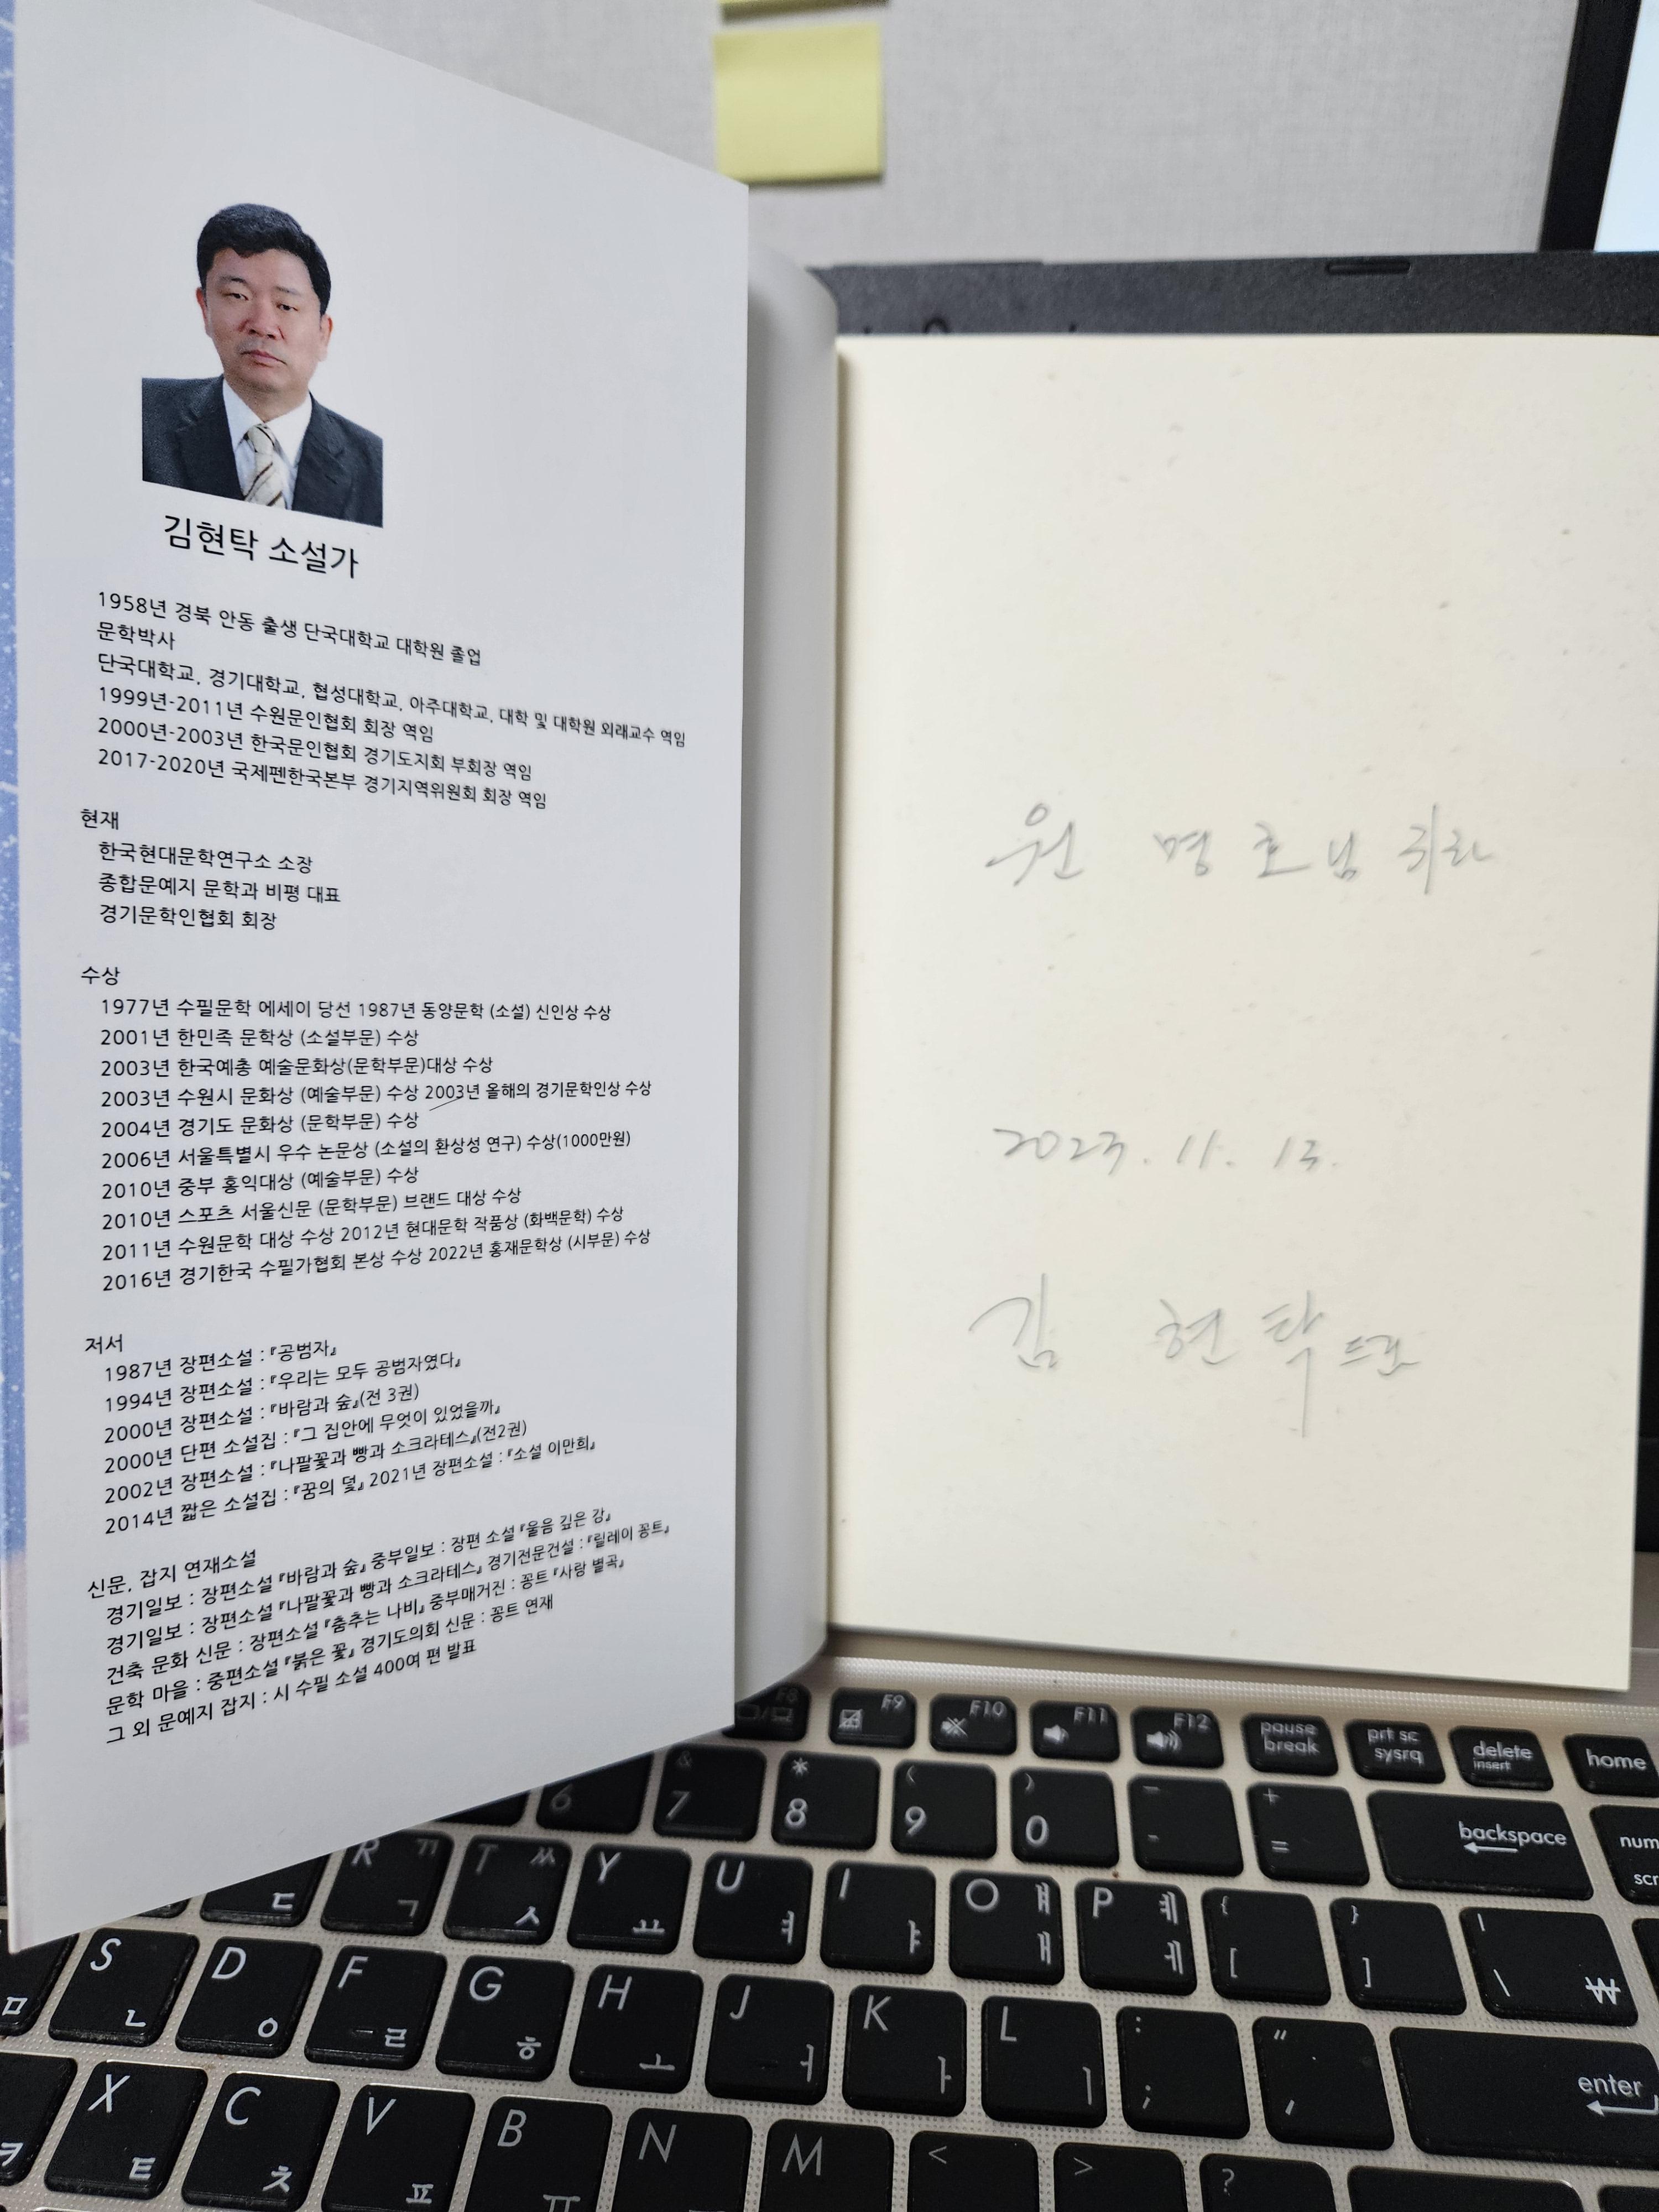 김현탁 소설가
1958년 경북 안동 출생 단국대학교 대학원 졸업
문학박사
단국대학교, 경기대학교, 협성대학교, 아주대학교, 대학 및 대학원 외래교수 역임
1999년-2011년 수원문인협회 회장 역임
2000년-2003년 한국문인협회 경기도지회 부회장 역임
2017-2020년 국제펜한국본부 경기지역위원회 회장 역임
현재
한국현대문학연구소 소장
종합문예지 문학과 비평 대표
경기문학인협회 회장
수상
1977년 수필문학 에세이 당선 1987년 동양문학 (소설) 신인상 수상
2001년 한민족 문학상 (소설부문) 수상
2003년 한국예총 예술문화상(문학부문)대상 수상
2003년 수원시 문화상 (예술부문) 수상 2003년 올해의 경기문학인상 수상
2004년 경기도 문화상 (문학부문) 수상
2006년 서울특별시 우수 논문상 (소설의 환상성 연구) 수상(1000만원)
2010년 중부 홍익대상 (예술부문) 수상
2010년 스포츠 서울신문 (문학부문) 브랜드 대상 수상
2011년 수원문학 대상 수상 2012년 현대문학 작품상 (화백문학) 수상
2016년 경기한국 수필가협회 본상 수상 2022년 홍재문학상 (시부문) 수상
저서
1987년 장편소설 : 『공범자』
1994년 장편소설 : 『우리는 모두 공범자였다』
2000년 장편소설 : 『바람과 숲』(전 3권)
2000년 단편 소설집 : 『그 집안에 무엇이 있었을까』
2002년 장편소설 : 『나팔꽃과 빵과 소크라테스』(전2권)
2014년 짧은 소설집 : 『꿈의 덫』 2021년 장편소설 : 『소설 이만희』
신문, 잡지 연재소설
경기일보 : 장편소설 『바람과 숲』 중부일보 : 장편 소설 『울음 깊은 강』
경기일보 : 장편소설 『나팔꽃과 빵과 소크라테스』 경기전문건설 : 『릴레이 꽁트』
건축 문화 신문 : 장편소설 『춤추는 나비』 중부매거진 : 꽁트 『사랑 별곡』
문학 마을 : 중편소설 『붉은 꽃』 경기도의회 신문 : 꽁트 연재
그 외 문예지 잡지 : 시 수필 소설 400여 편 발표
원 명호님 귀하
2023. 11. 13.
김 현탁 드림
F8 F9 F10 F11 F12 pause break prt sc sysrq delete insert home
6 & 7 * 8 ( 9 ) 0 _ - + = backspace num
ㄷ R ㄲ ㄱ T ㅆ ㅅ Y ㅛ U ㅕ I ㅑ O ㅒ ㅐ P ㅖ ㅔ { [ } ] | \ ₩ scr
ㅁ S ㄴ D ㅇ F ㄹ G ㅎ H ㅗ J ㅓ K ㅏ L ㅣ : ; " ' enter
ㅋ X ㅌ C ㅊ V ㅍ B ㅠ N M < > ?